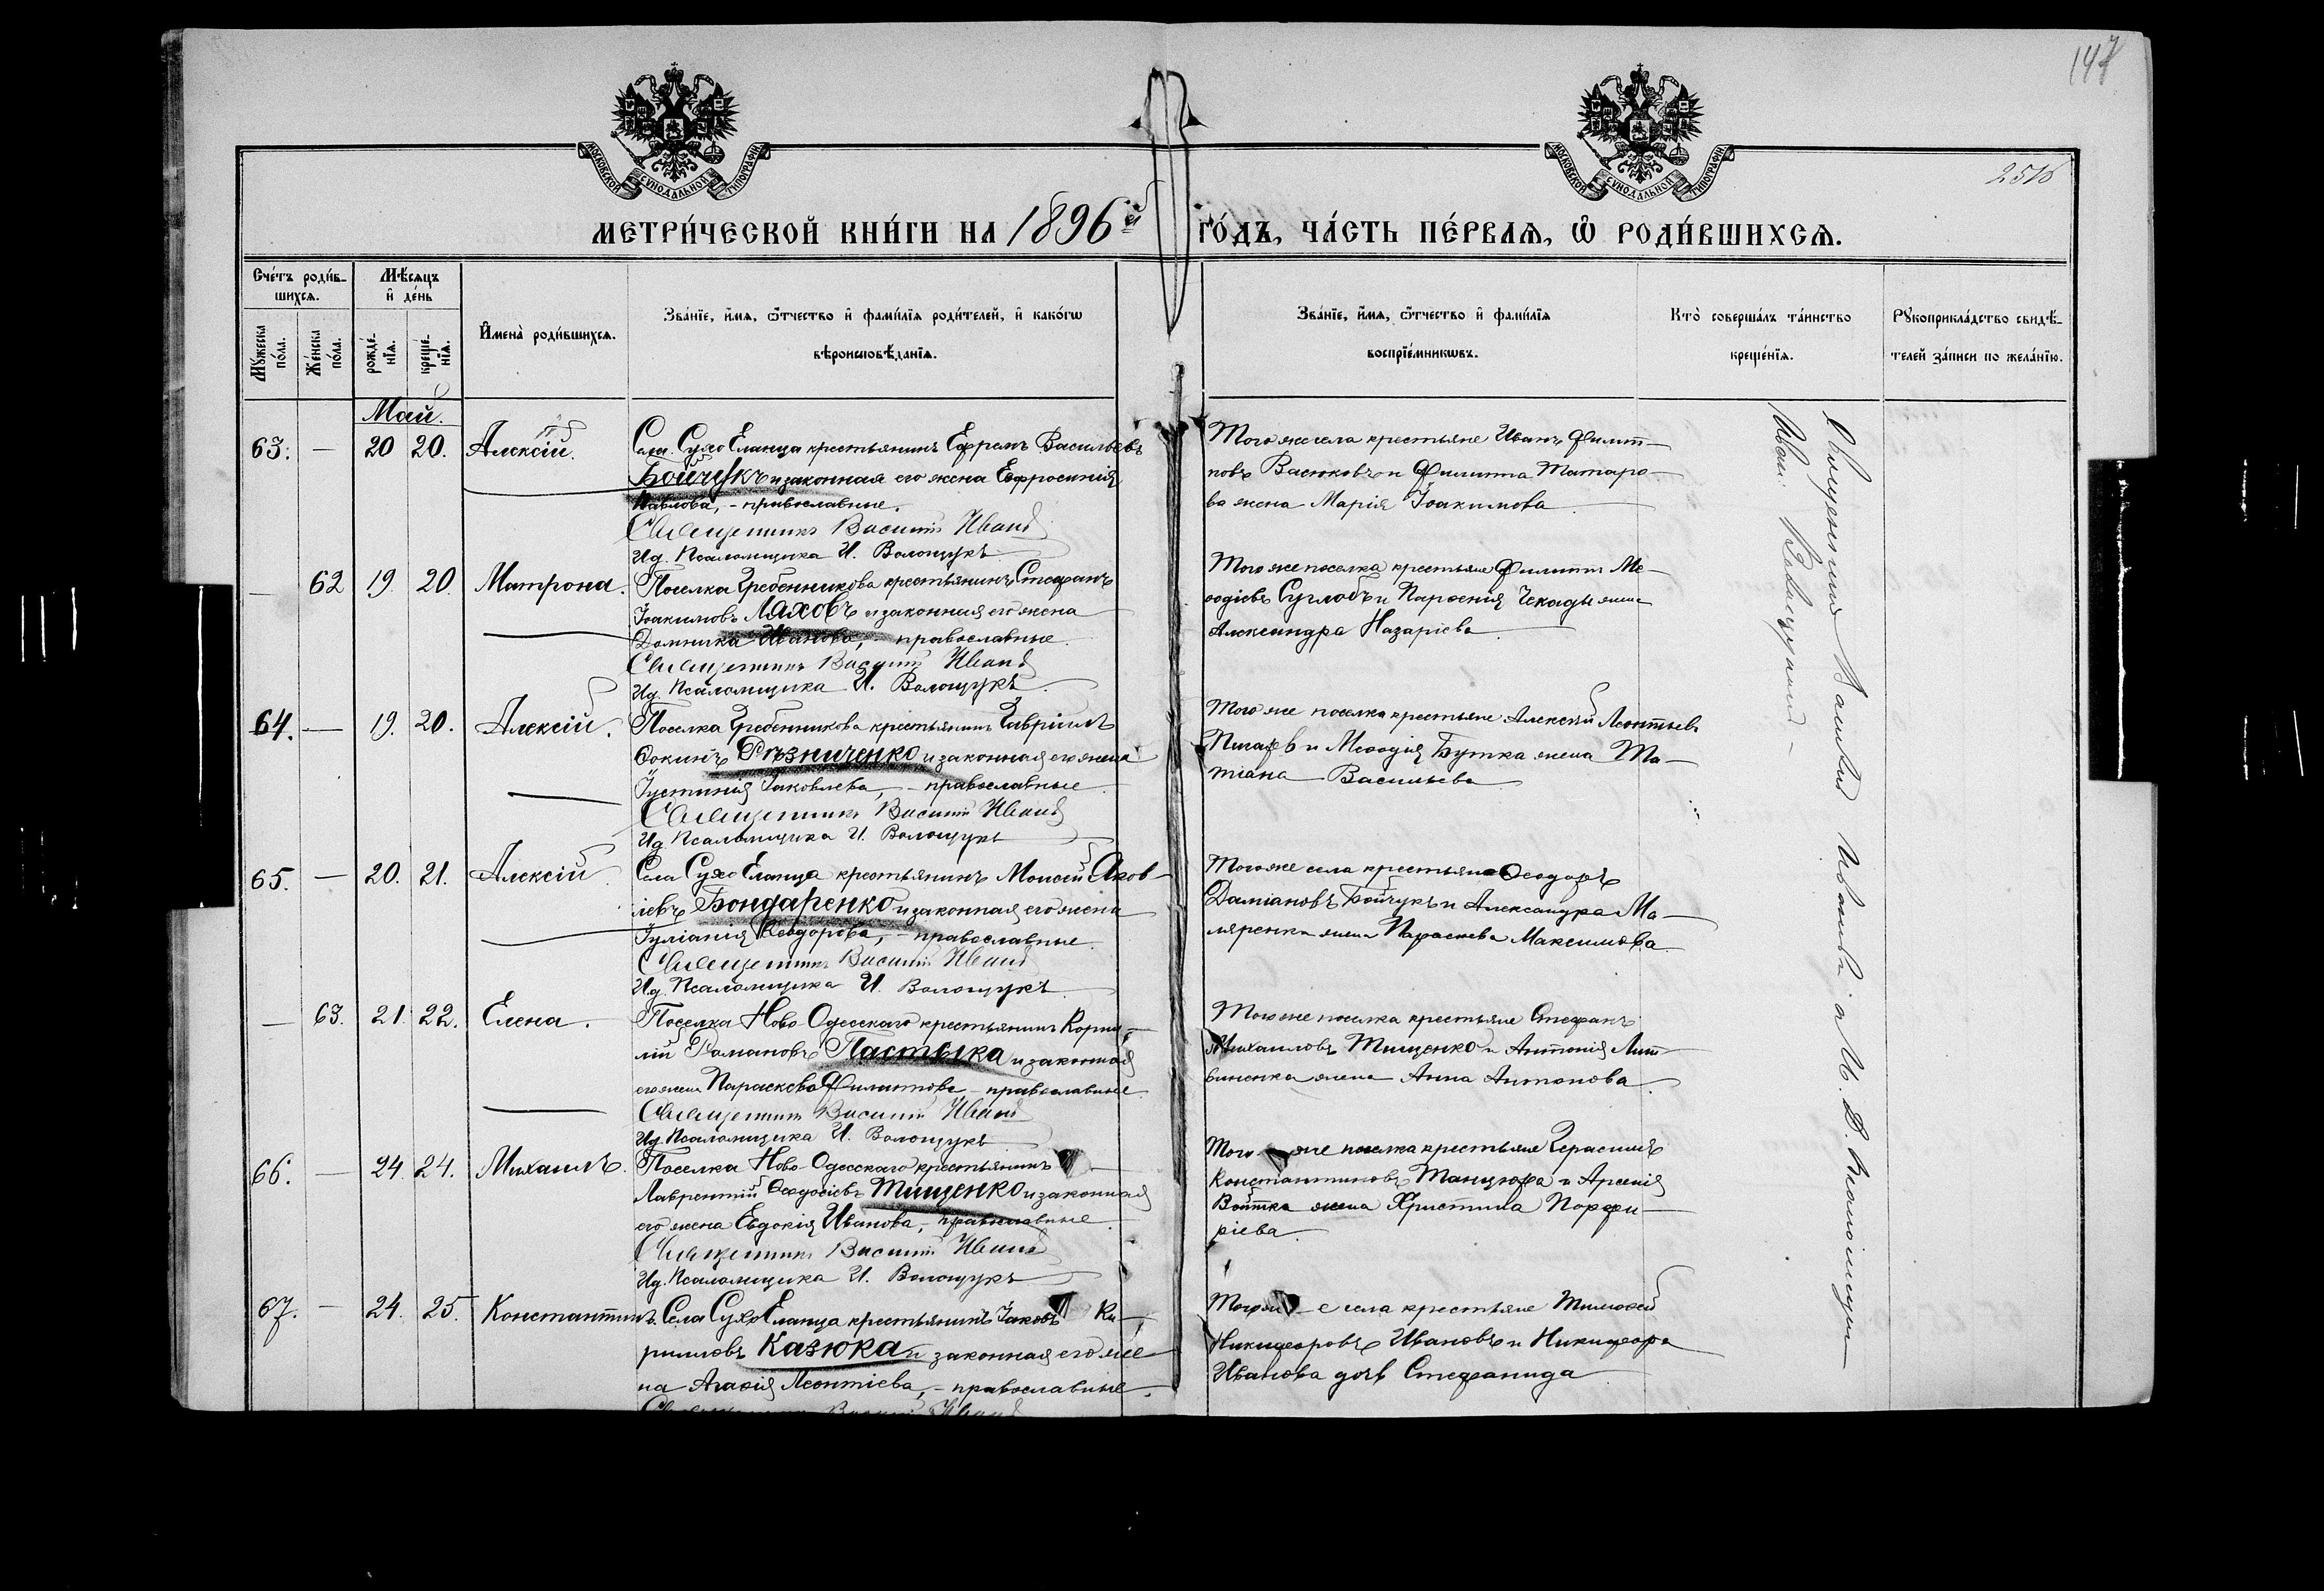 147
251б
МОСКОВСКОЙ СѴНОДАЛЬНОЙ ТИПОГРАФІИ
МОСКОВСКОЙ СѴНОДАЛЬНОЙ ТИПОГРАФІИ
МЕТРИ́ЧЕСКОЙ КНИ́ГИ НА 1896й ГО́ДЪ, ЧА́СТЬ ПЕ́РВАѦ, Ѡ҆ РОДИ́ВШИХСѦ.
Сче́тъ роди́в-
шихсѧ.
Мѣ́сяцъ
и҆ де́нь
Мꙋ́жеска по́ла.
Же́нска по́ла.
рожде́-
нїѧ.
креще́-
нїѧ.
И҆мена̀ роди́вшихсѧ.
Зва́нїе, и҆́мѧ, ѻ҆́тчество и҆ фами́лїѧ роди́телей, и҆ како́гѡ
вѣроисповѣ́данїѧ.
Зва́нїе, и҆́мѧ, ѻ҆́тчество и҆ фами́лїѧ
воспрїе́мникѡвъ.
Кто̀ соверша́лъ та́инство
креще́нїѧ.
Рꙋкоприкла́дство свидѣ́-
телей за́писи по жела́нїю.
Май.
63. — 20 20. Алексій.
Села Сухо Еланца крестьянинъ Ефремъ Васильевъ
Бойчукъ и законная его жена Евфросинія
Павлова, - православные.
Священникъ Василій Иванов
Ид. Псаломщика И. Волощукъ
Того же села крестьяне Иванъ Филип-
повъ Васюковъ и Филиппа Татаро-
ва жена Марія Іоакимова
— 62 19. 20. Матрона.
Поселка Гребенникова крестьянинъ Стефанъ
Іоакимовъ Ляховъ и законная его жена
Домника Иванова, - православные.
Священникъ Василій Иванов
Ид. Псаломщика И. Волощукъ
Того же поселка крестьяне Филиппъ Ме-
ѳодіевъ Суглобъ и Парѳенія Чекады жена
Александра Назаріева
64. — 19. 20. Алексій.
Поселка Гребенникова крестьянинъ Гавріилъ
Ѳокинъ Рѣзниченко и законная его жена
Іустинія Іаковлева, - православные
Священникъ Василій Иванов
Ид. Псаломщика И. Волощукъ
Того же поселка крестьяне Алексѣй Леонтьевъ
и Меѳодія Бутка жена Та-
тіана Васильева
65. — 20. 21. Алексій
Села Сухо Еланца крестьянинъ Моисей Яков-
левъ Бондаренко и законная его жена
Іуліанія Ѳеодорова, - православные.
Священникъ Василій Иванов
Ид. Псаломщика И. Волощукъ
Того же села крестьяне Ѳеодоръ
Даміановъ Бойчукъ и Александра Ма-
ляренка жена Параскева Максимова
— 63. 21. 22. Елена.
Поселка Ново Одесскаго крестьянинъ Корни-
лій Романовъ Пастыка и законная
его жена Параскева Филиппова - православные
Священникъ Василій Иванов
Ид. Псаломщика И. Волощукъ
Того же поселка крестьяне Стефанъ
Михаиловъ Тищенко и Антонія Лит-
виненка жена Анна Антонова
66. — 24. 24. Михаилъ.
Поселка Ново-Одесскаго крестьянинъ
Лаврентій Ѳеодосіевъ Тищенко и законная
его жена Евдокія Иванова, - православные
Священникъ Василій Иванов
Ид. Псаломщика И. Волощукъ
Того же поселка крестьяне Герасимъ
Константиновъ Танцюра и Арсенія
Войтка жена Христина Порфи-
ріева
67. — 24. 25. Константинъ.
Села Сухо Еланца крестьянинъ Іаковъ Ки-
рилловъ Казюка и законная его же-
на Агаѳія Леонтіева, - православные.
Священникъ Василій Иванов
Того же села крестьяне Тимоѳей
Никифоровъ Ивановъ и Никифора
Иванова дочь Стефанида
Священникъ Василій
Иван